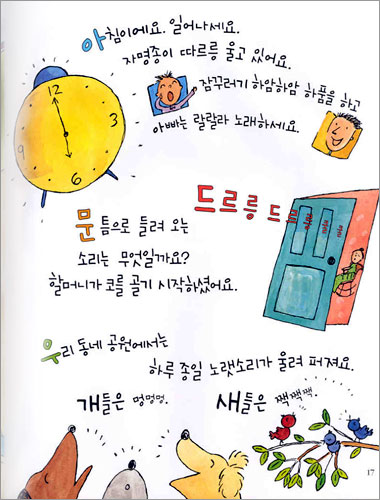 아침이에요. 일어나세요.
자명종이 따르릉 울고 있어요.
잠꾸러기 하암하암 하품을 하고
아빠는 랄랄라 노래하세요.
12
3
6
9
드르릉 드르릉 르릉 르릉
문틈으로 들려 오는
소리는 무엇일까요?
할머니가 코를 골기 시작하셨어요.
우리 동네 공원에서는
하루 종일 노랫소리가 울려 퍼져요.
개들은 멍멍멍.
새들은 짹짹짹.
17